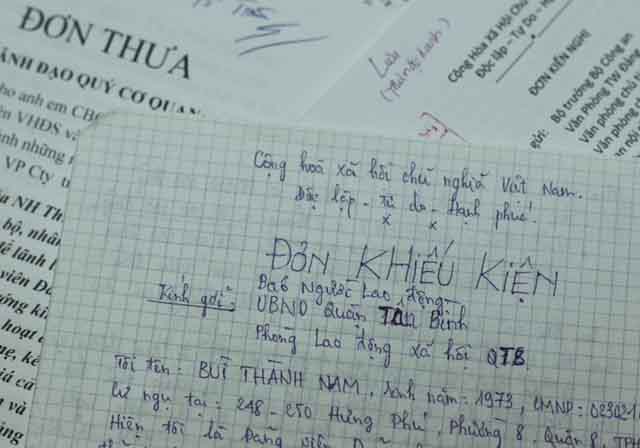 ĐƠN THƯA
ÃNH ĐẠO QUÝ CƠ QUAN
ho anh em
ên VHDS
ình những
VP Cty
ia NH Th
bộ, nhân
tế lãnh
viên Đ
ứng ki
hoạt
nẹ, kể
iá cả
n và
tháng
Lưu
Cộng Hòa Xã Hội Chủ
Độc lập - Tự Do - H
ĐƠN KIẾN NGHỊ
gửi: Bộ trưởng Bộ Công an
Văn Phòng TW Đảng
Văn phòng chủ
Văn phòng
Cộng hoà xã hội chủ nghĩa Việt Nam.
Độc lập - tự do - Hạnh phúc!
ĐƠN KHIẾU KIỆN
Kính gởi: Báo Người Lao động
UBND Quận TÂN Bình
Phòng Lao động xã hội QTB
Tôi tên: BUÌ THÀNH NAM, Sinh năm: 1973, CMND: 02302
Cư ngụ tại: 248-250 Hưng Phú, Phường 8, Quận 8, T
Hiện tôi là Đảng viên